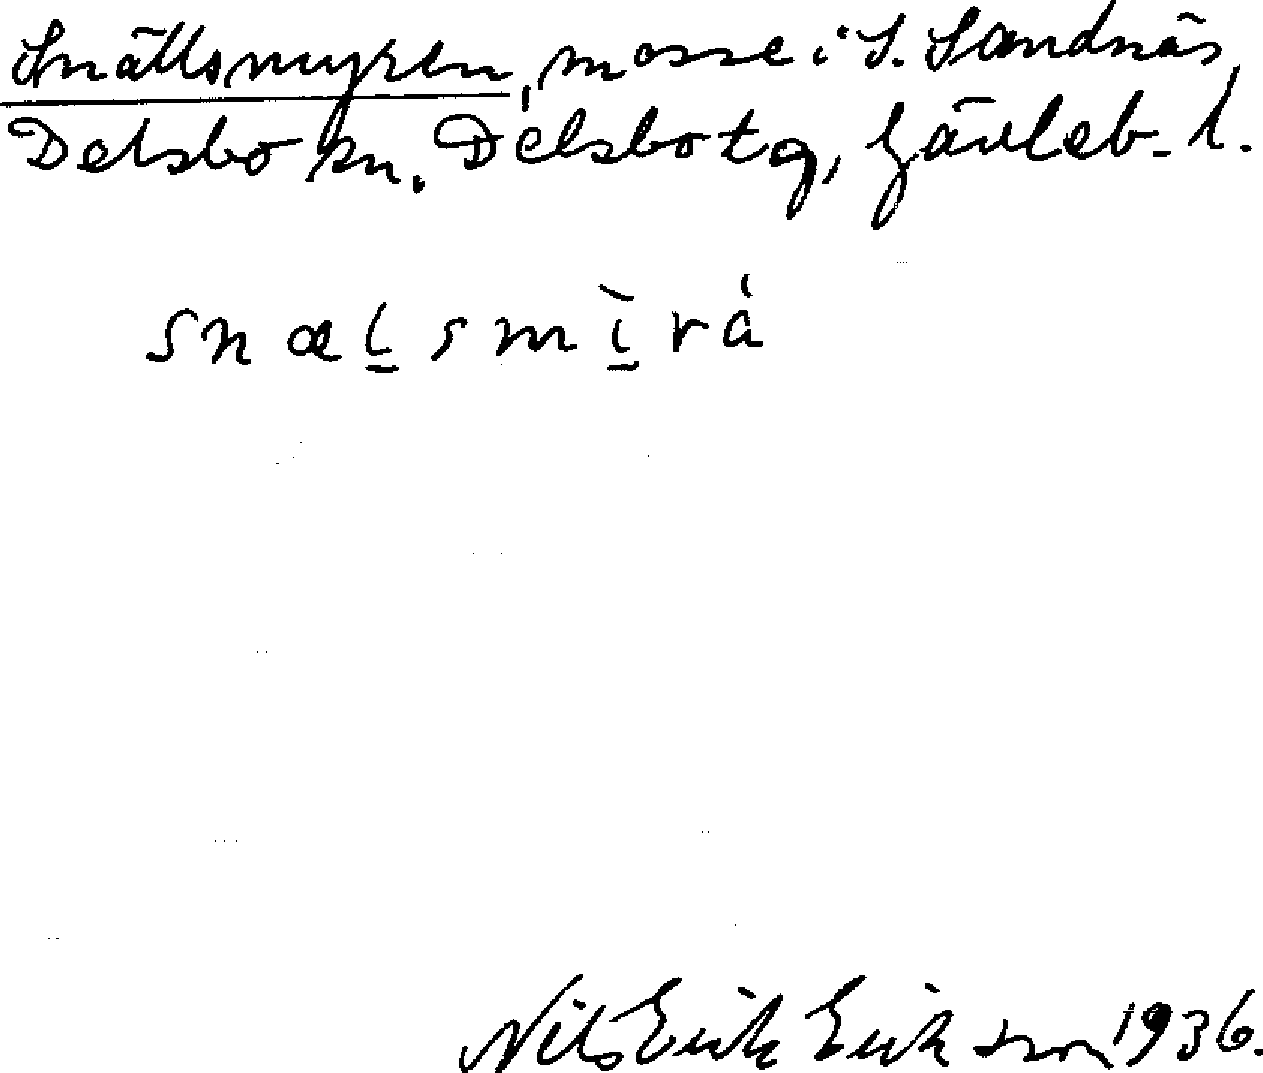 Snällsmyren, mosse i S. Sandnäs,
Delsbo sn. Delsbo tg, Gävleb. l.
snæl̲smì̲rȧ
Nils Erik Eriksson 1936.